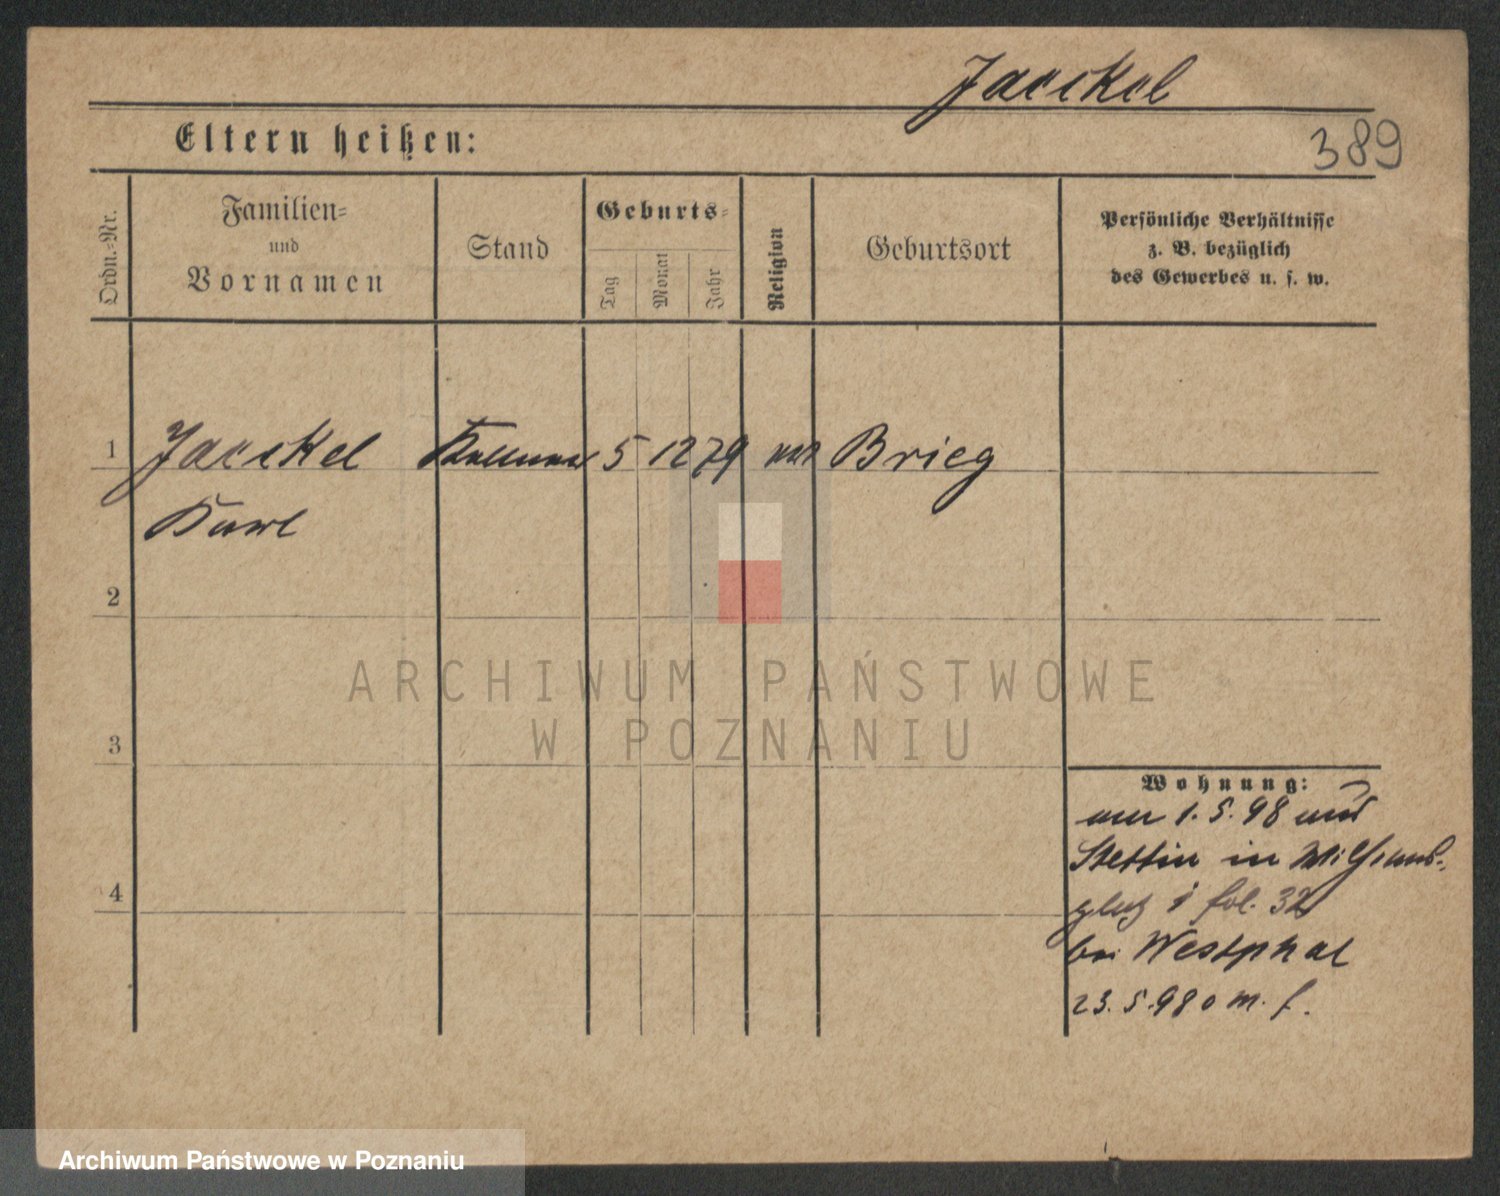 Jaeckel
389
Eltern heißen:
Ordn.-Nr.
Familien-
und
Vornamen
Stand
Geburts-
Tag
Monat
Jahr
Religion
Geburtsort
Persönliche Verhältnisse
z. B. bezüglich
des Gewerbes u. s. w.
1 Jaeckel Kellner 5 12 79 Brieg
Karl
2
3
4
ARCHIWUM PAŃSTWOWE
W POZNANIU
Wohnung:
1. 5. 98
Stettin in Wilhelms-
fol. 32
bei Westphal
23. 5. 98
Archiwum Państwowe w Poznaniu